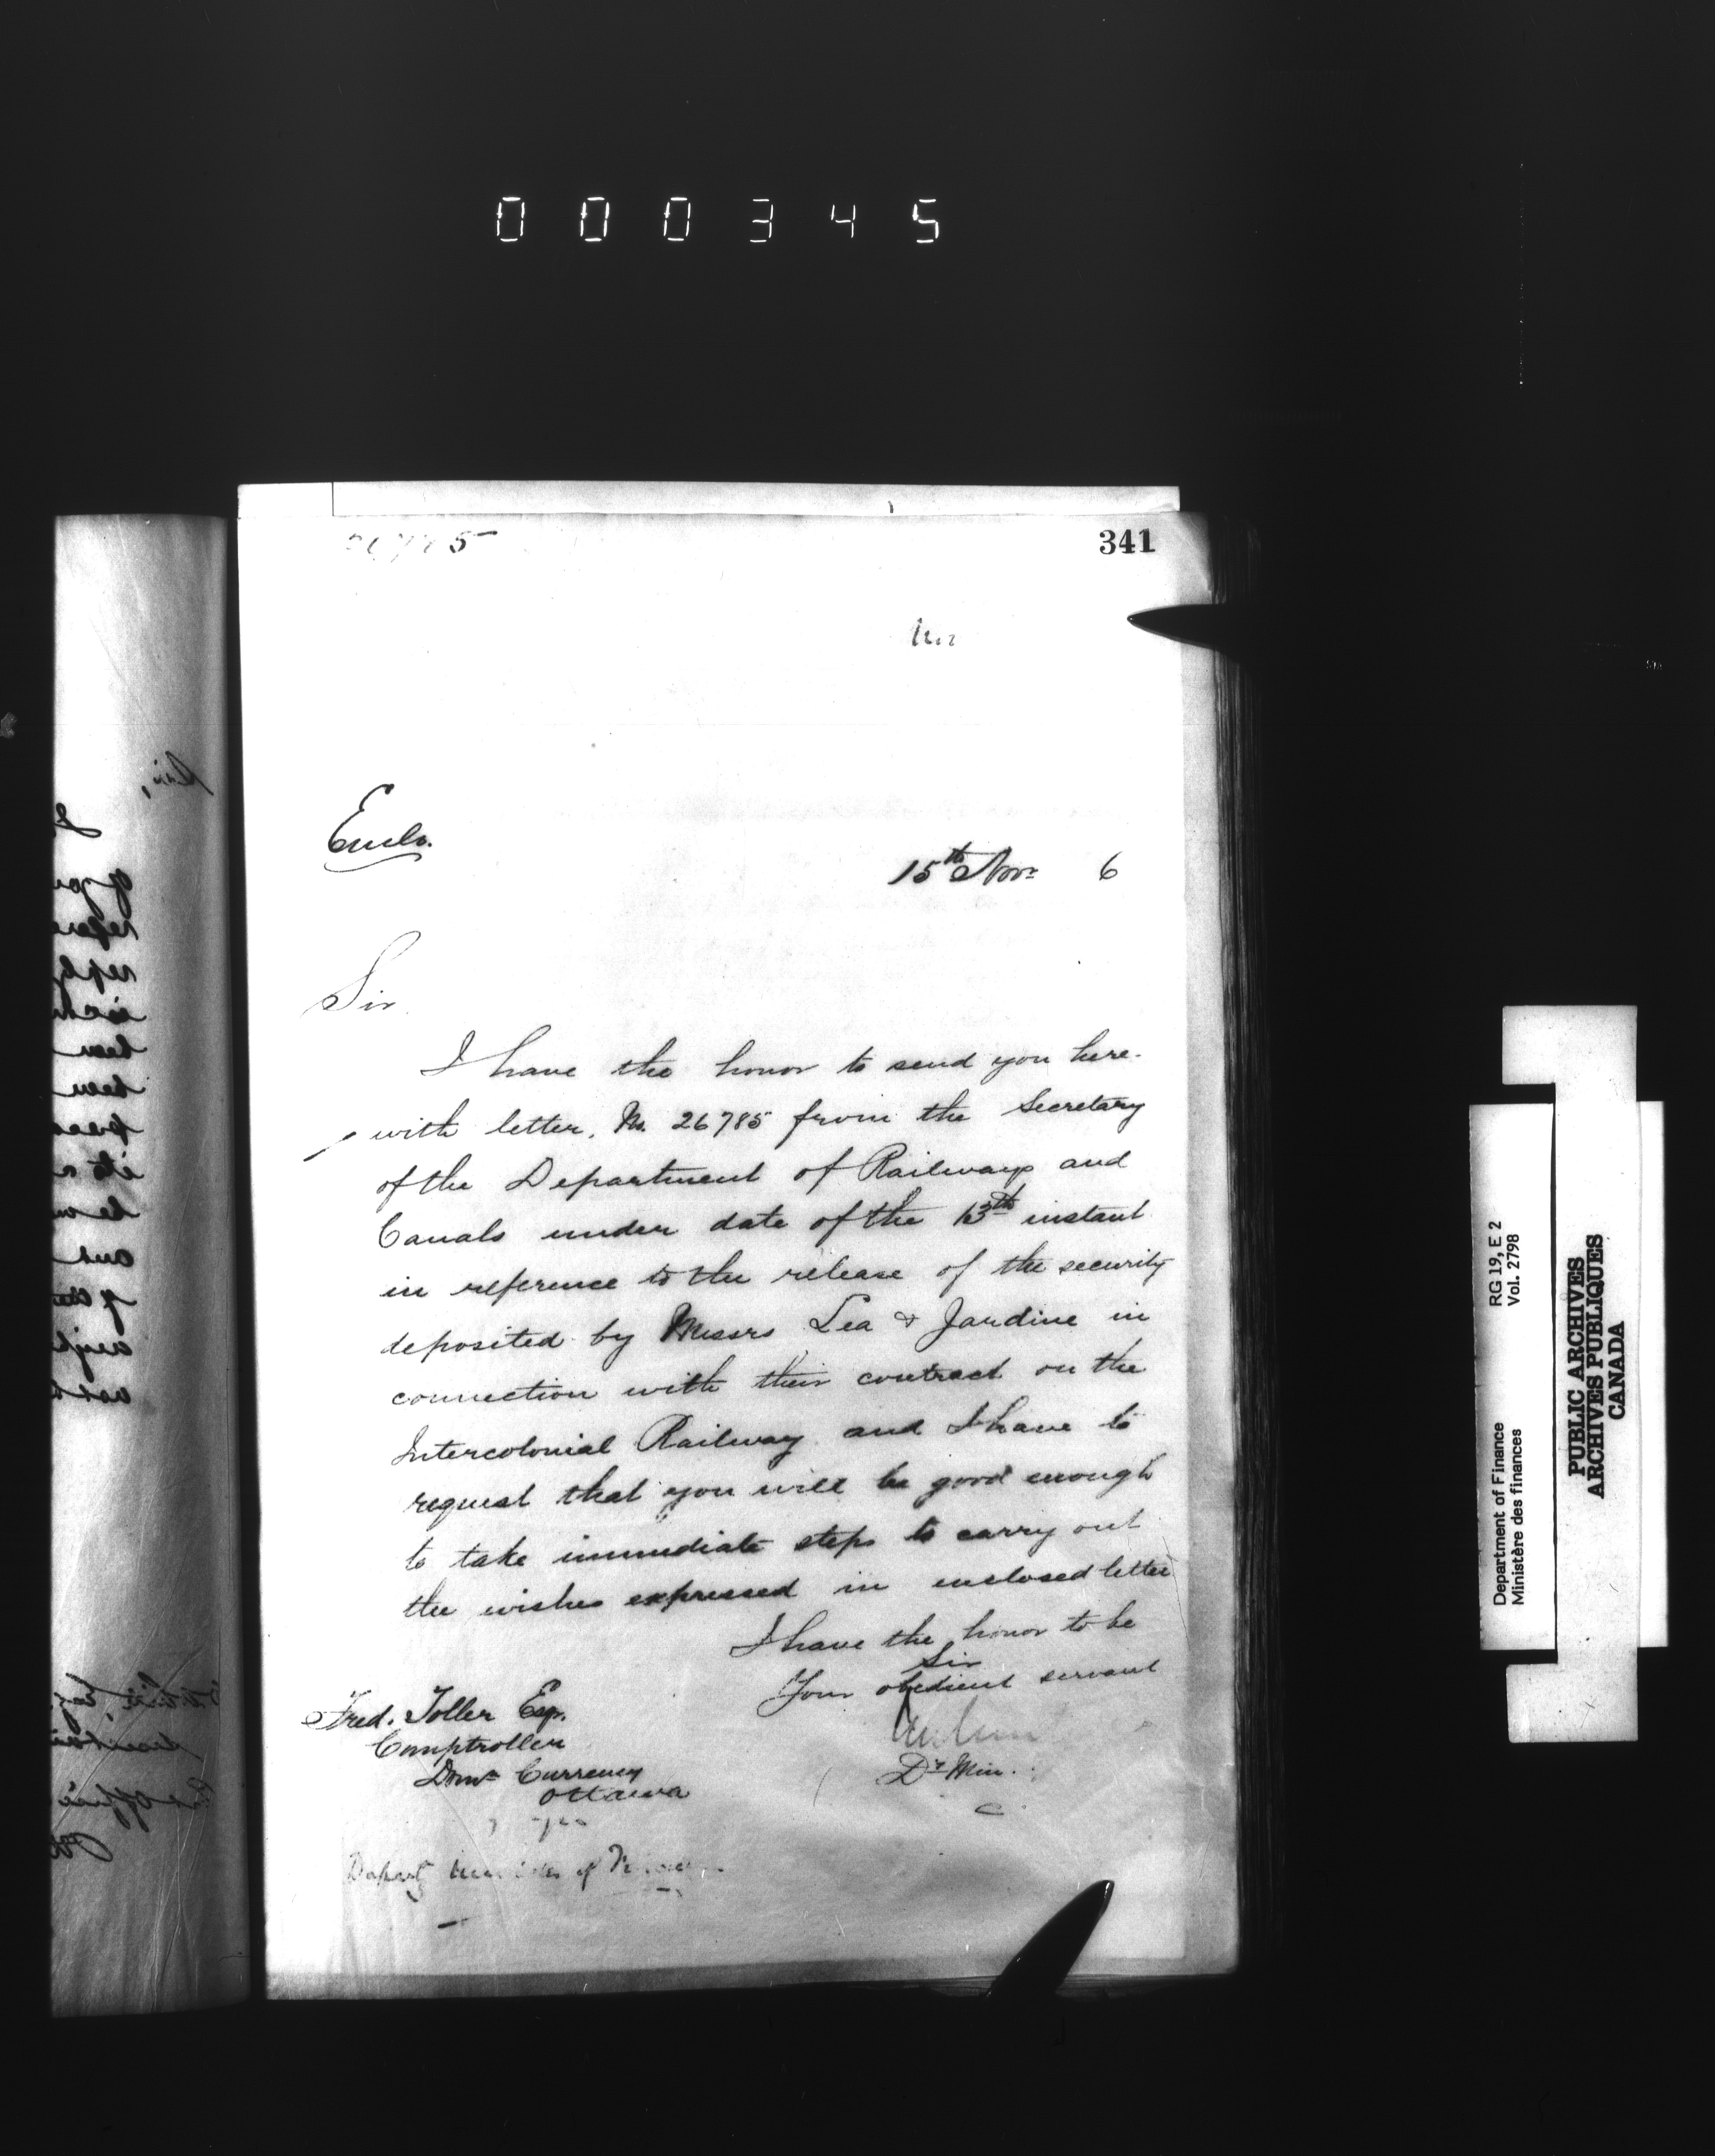 000345
341
Enclo.
15th Nov. 6
Sir
I have the honor to send you here-
with letter, No. 26785 from the Secretary
of the Department of Railways and
Canals under date of the 13th instant
in reference to the release of the security
deposited by Messrs Lea & Jardine in
connection with their contract on the
Intercolonial Railway and I have to
request that you will be good enough
to take immediate steps to carry out
the wishes expressed in enclosed letter
I have the honor to be
Sir
Your obedient servant
Dy Min.
Fred. Toller Esq.
Comptroller
Domn Currency
Ottawa
Department of Finance RG 19, E 2
Ministère des finances Vol. 2798
PUBLIC ARCHIVES
ARCHIVES PUBLIQUES
CANADA